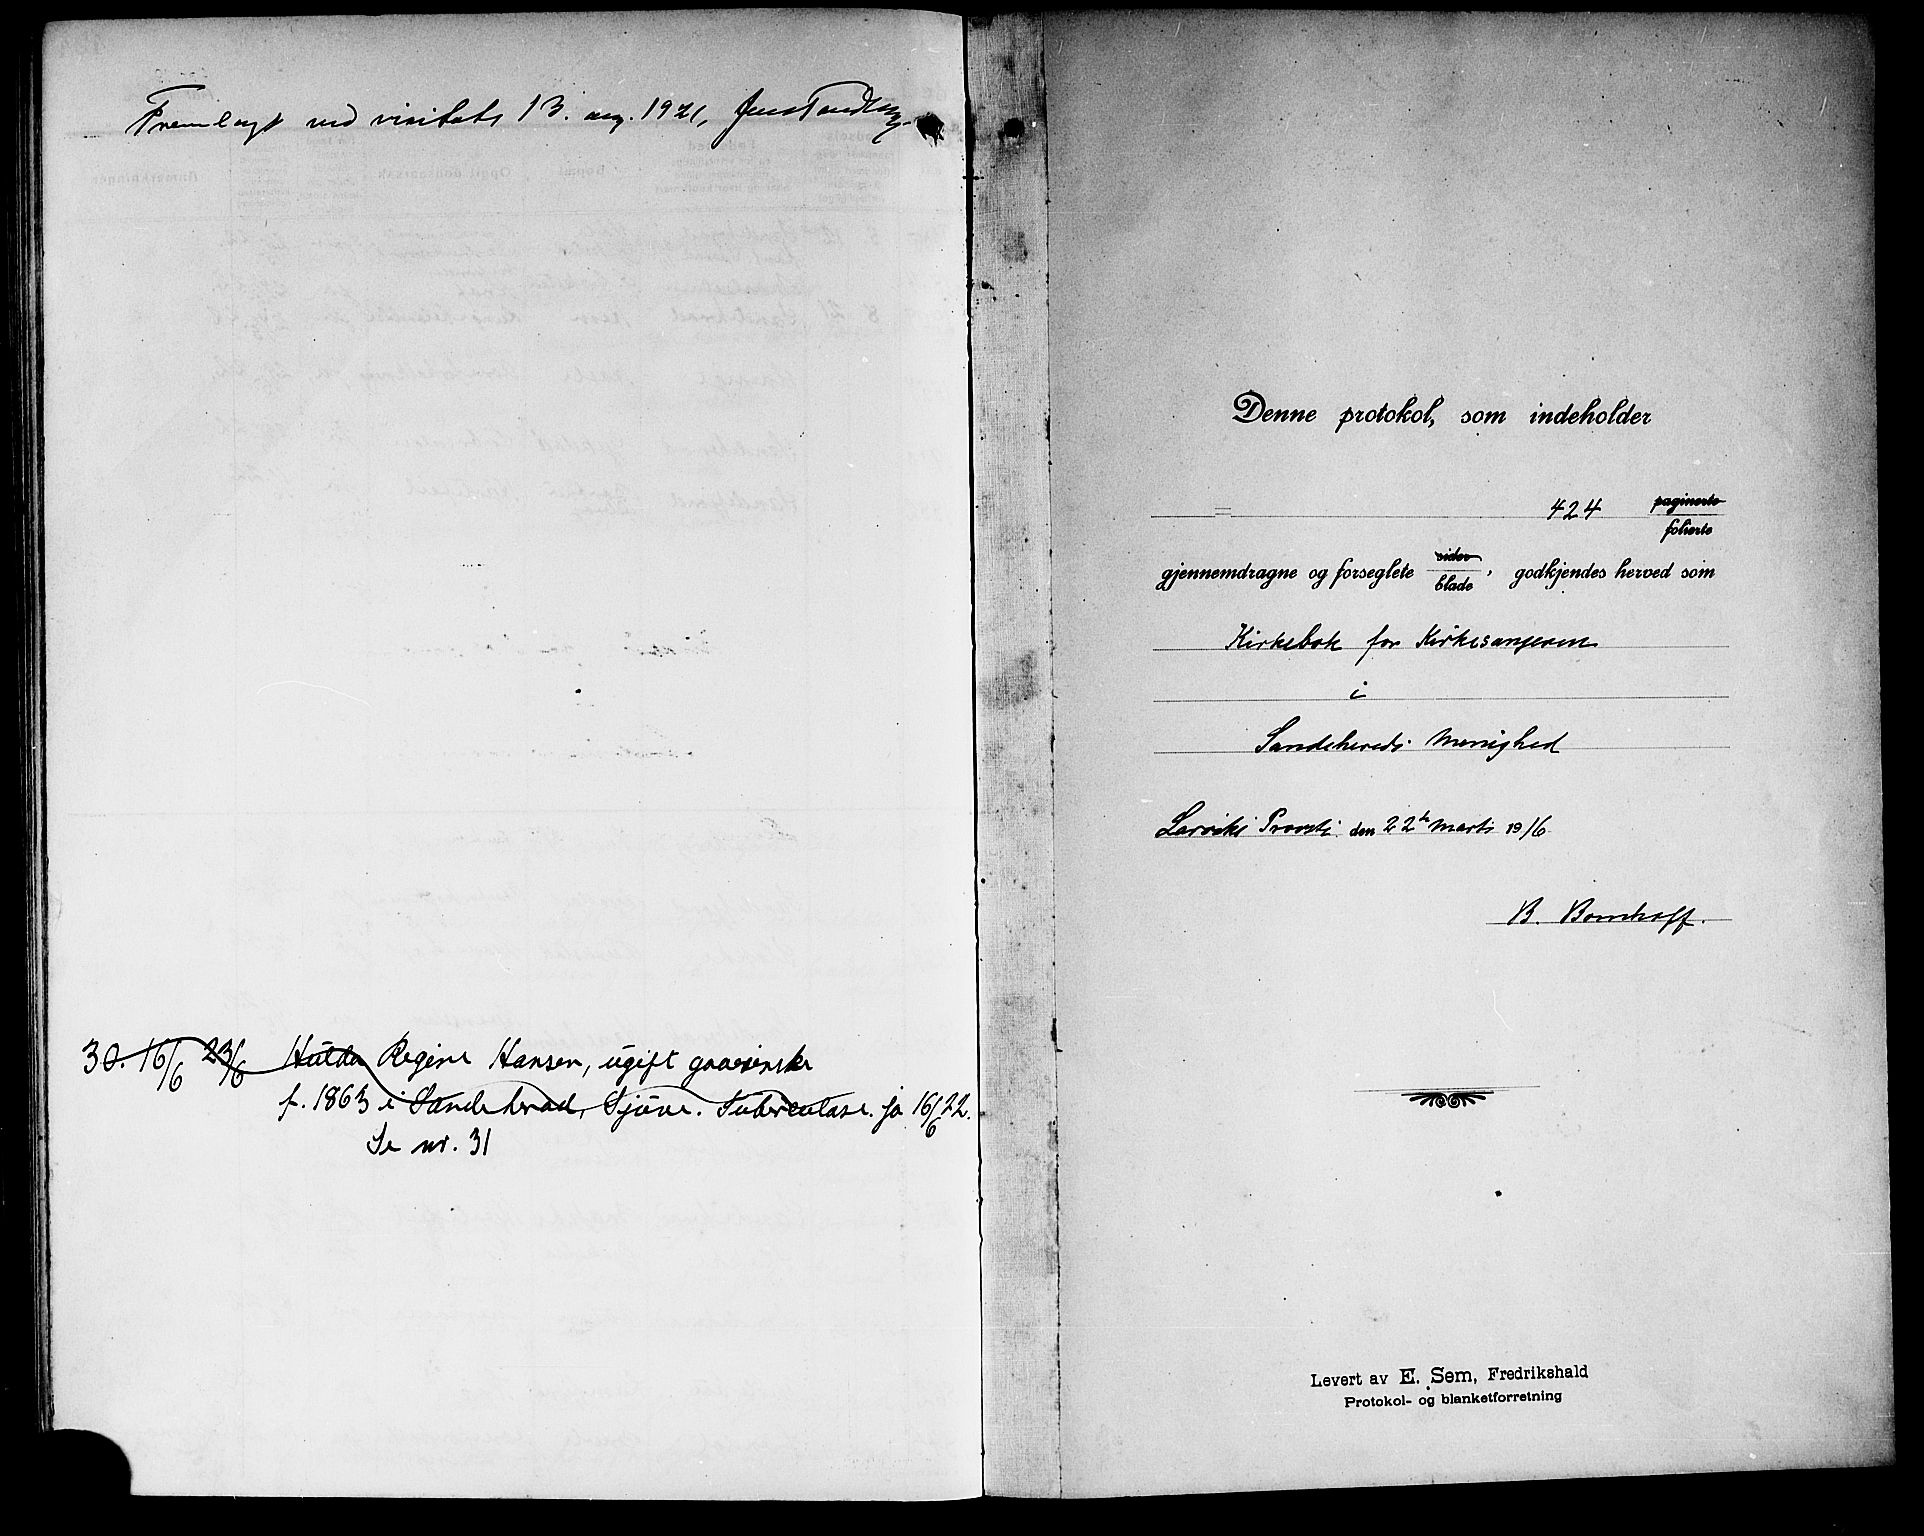 Fremlagt ved visitats 13. aug. 1921, Jens Tandberg.
30. 16/6 23/6 Hulda Regine Hansen, ugift gaardenske
f. 1863 i Sandeherad, Sjüve. Tuberculose. ja 16/6 22.
Se nr. 31
Denne protokol, som indeholder
= 424 paginerte
folierte
gjennemdragne og forseglete sider
blade, godkjendes herved som
Kirkebok for Kirkesangeren
i
Sandeherads Menighed
Larviks Provsti den 22de Marts 1916.
B. Bomhoff.
Levert av E. Sem, Fredrikshald
Protokol- og blanketforretning